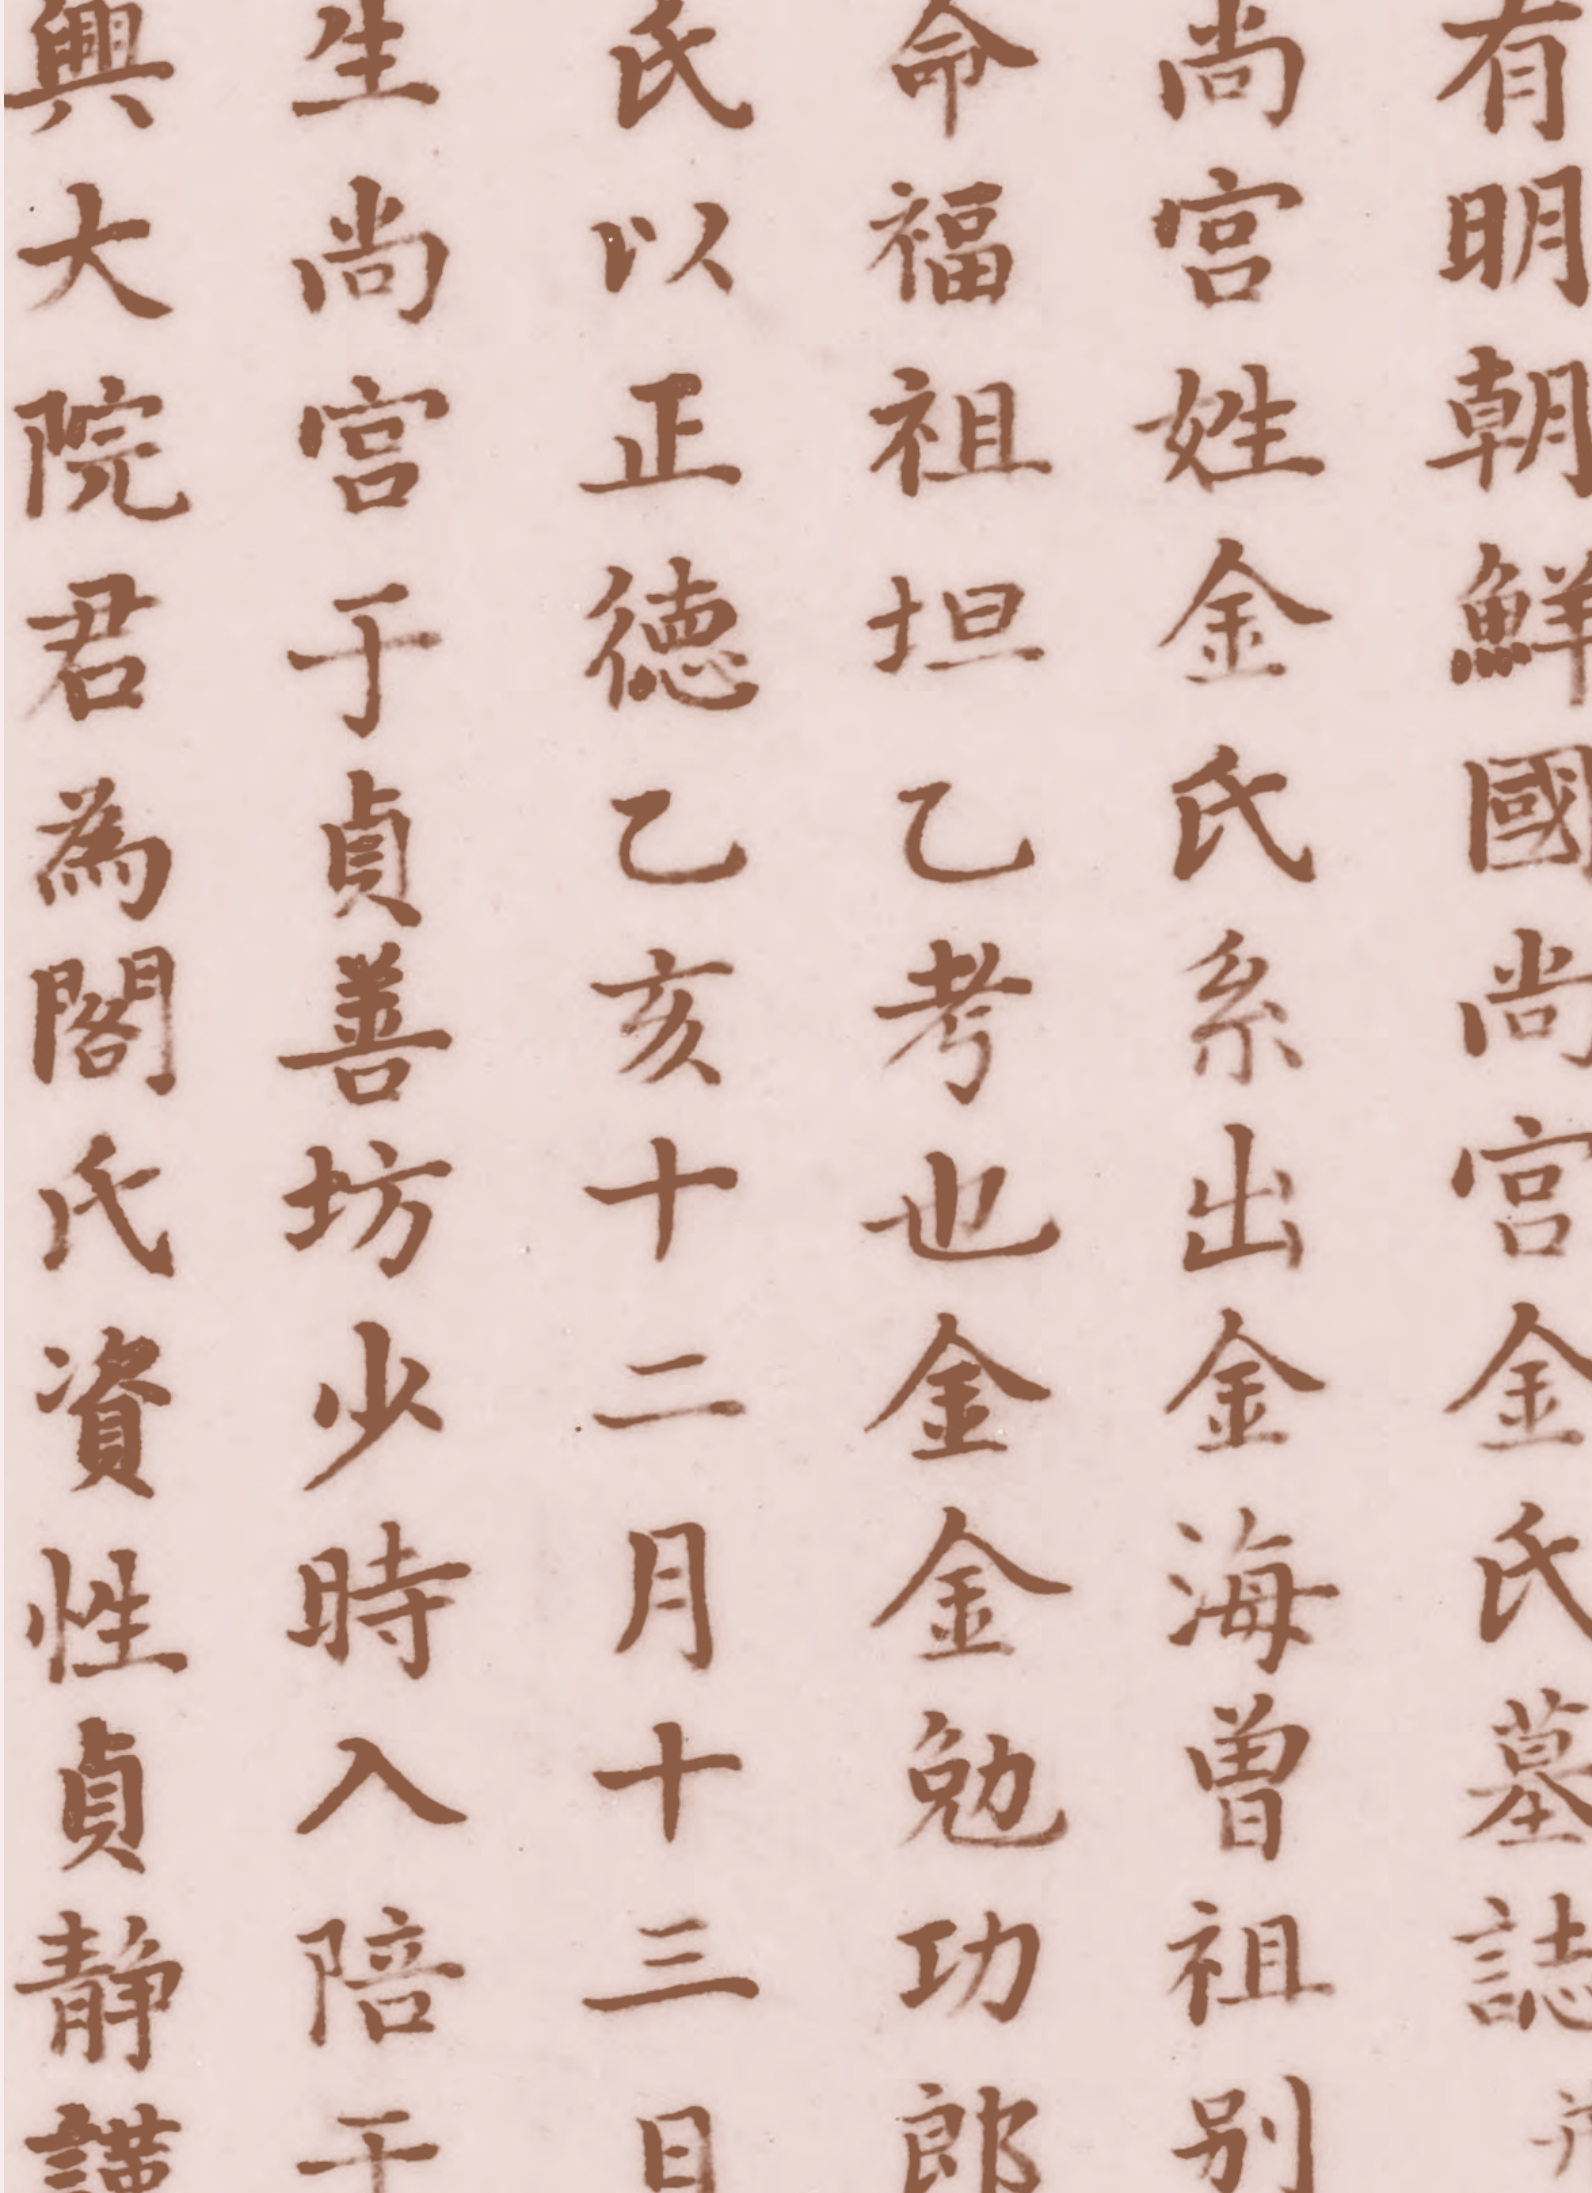 有明朝鮮國尚宮金氏墓誌
尚宮姓金氏系出金海曾祖別
命福祖坦乙考也金金勉功郎
氏以正德乙亥十二月十三日
生尚宮于貞善坊少時入陪于
興大院君為閤氏資性貞静謹